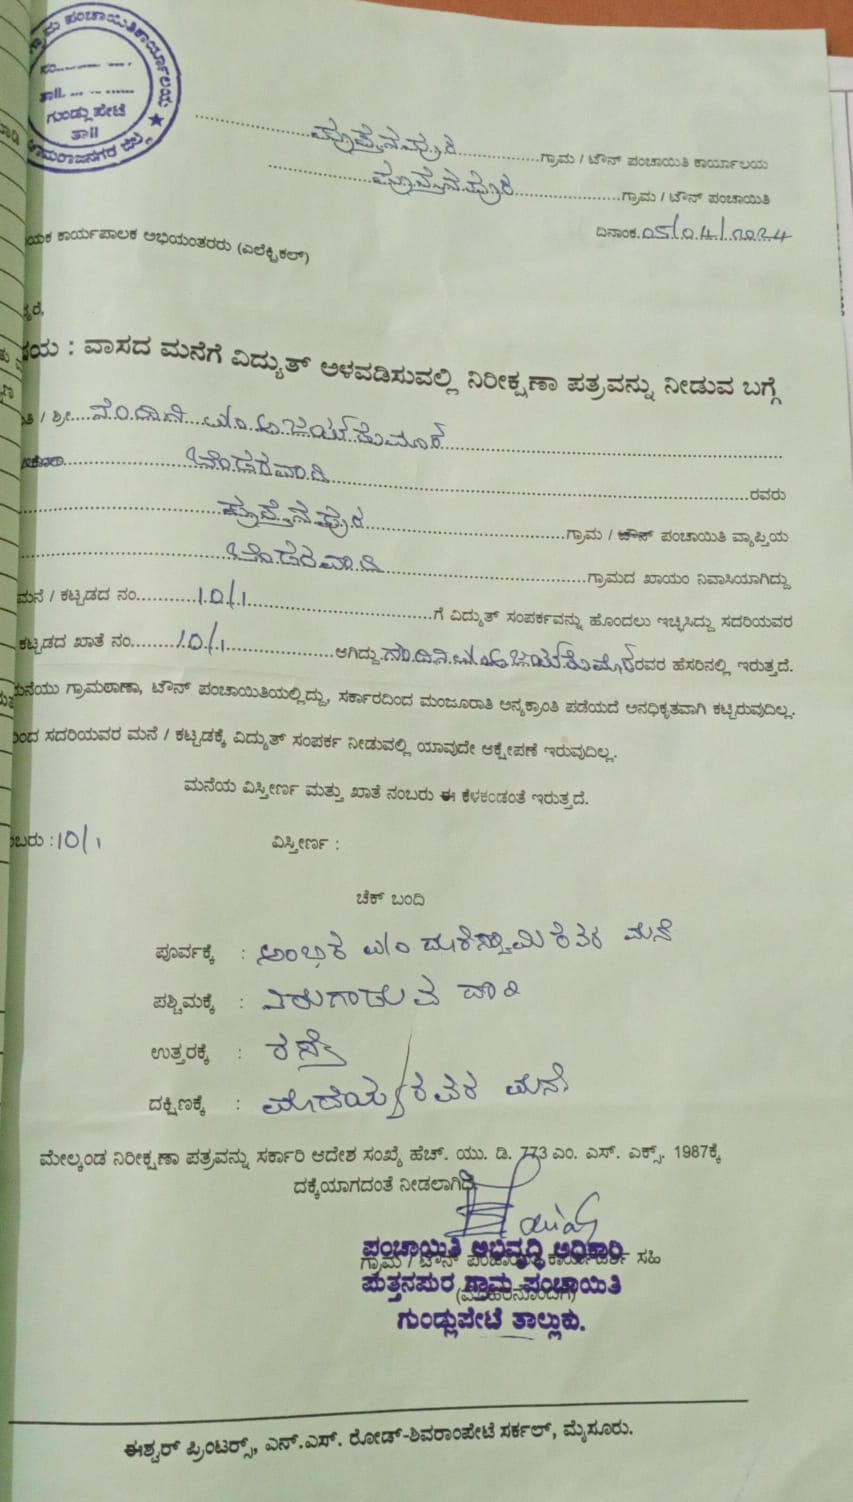 ಗ್ರಾಮ ಪಂಚಾಯಿತಿ ಕಾರ್ಯಾಲಯ
ಸಂ
ತಾ||
ಗುಂಡ್ಲುಪೇಟೆ
ತಾ||
ಚಾಮರಾಜನಗರ ಜಿಲ್ಲೆ
ಪುತ್ತನಪುರ ಗ್ರಾಮ / ಟೌನ್ ಪಂಚಾಯಿತಿ ಕಾರ್ಯಾಲಯ
ಪುತ್ತನಪುರ ಗ್ರಾಮ / ಟೌನ್ ಪಂಚಾಯಿತಿ
ದಿನಾಂಕ 05/04/2024
ಯಕ ಕಾರ್ಯಪಾಲಕ ಅಭಿಯಂತರರು (ಎಲೆಕ್ಟ್ರಿಕಲ್)
ರೆ,
ಷಯ : ವಾಸದ ಮನೆಗೆ ವಿದ್ಯುತ್ ಅಳವಡಿಸುವಲ್ಲಿ ನಿರೀಕ್ಷಣಾ ಪತ್ರವನ್ನು ನೀಡುವ ಬಗ್ಗೆ
ತಿ / ಶ್ರೀ ನಂದಿನಿ W/o ಅಜಯ್ ಕುಮಾರ್
ರವರು
ಪುತ್ತನಪುರ ಗ್ರಾಮ / ಟೌನ್ ಪಂಚಾಯಿತಿ ವ್ಯಾಪ್ತಿಯ
ಗ್ರಾಮದ ಖಾಯಂ ನಿವಾಸಿಯಾಗಿದ್ದು
ಮನೆ / ಕಟ್ಟಡದ ನಂ. 10/1 ಗೆ ವಿದ್ಯುತ್ ಸಂಪರ್ಕವನ್ನು ಹೊಂದಲು ಇಚ್ಛಿಸಿದ್ದು ಸದರಿಯವರ
ಕಟ್ಟಡದ ಖಾತೆ ನಂ. 10/1 ಆಗಿದ್ದು ನಂದಿನಿ W/o ಅಜಯ್ ಕುಮಾರ್ ರವರ ಹೆಸರಿನಲ್ಲಿ ಇರುತ್ತದೆ.
ಮನೆಯು ಗ್ರಾಮಠಾಣಾ, ಟೌನ್ ಪಂಚಾಯಿತಿಯಲ್ಲಿದ್ದು, ಸರ್ಕಾರದಿಂದ ಮಂಜೂರಾತಿ ಅನ್ಯಕ್ರಾಂತಿ ಪಡೆಯದೆ ಅನಧಿಕೃತವಾಗಿ ಕಟ್ಟಿರುವುದಿಲ್ಲ.
ಂದ ಸದರಿಯವರ ಮನೆ / ಕಟ್ಟಡಕ್ಕೆ ವಿದ್ಯುತ್ ಸಂಪರ್ಕ ನೀಡುವಲ್ಲಿ ಯಾವುದೇ ಆಕ್ಷೇಪಣೆ ಇರುವುದಿಲ್ಲ.
ಮನೆಯ ವಿಸ್ತೀರ್ಣ ಮತ್ತು ಖಾತೆ ನಂಬರು ಈ ಕೆಳಕಂಡಂತೆ ಇರುತ್ತದೆ.
ಂಬರು : 10/1 ವಿಸ್ತೀರ್ಣ :
ಚೆಕ್ ಬಂದಿ
ಪೂರ್ವಕ್ಕೆ : W/o ರವರ ಮನೆ
ಪಶ್ಚಿಮಕ್ಕೆ : ತಿರುಗಾಡುವ ದಾರಿ
ಉತ್ತರಕ್ಕೆ : ರಸ್ತೆ
ದಕ್ಷಿಣಕ್ಕೆ : ಮಾದಯ್ಯ ರವರ ಮನೆ
ಮೇಲ್ಕಂಡ ನಿರೀಕ್ಷಣಾ ಪತ್ರವನ್ನು ಸರ್ಕಾರಿ ಆದೇಶ ಸಂಖ್ಯೆ ಹೆಚ್. ಯು. ಡಿ. 773 ಎಂ. ಎಸ್. ಎಕ್ಸ್. 1987ಕ್ಕೆ
ದಕ್ಕೆಯಾಗದಂತೆ ನೀಡಲಾಗಿದೆ
ಪಂಚಾಯಿತಿ ಅಭಿವೃದ್ಧಿ ಅಧಿಕಾರಿ
ಗ್ರಾಮ / ಟೌನ್ ಪಂಚಾಯಿತಿ ಕಾರ್ಯದರ್ಶಿ ಸಹಿ
ಪುತ್ತನಪುರ ಗ್ರಾಮ ಪಂಚಾಯಿತಿ
(ಮೊಹರಿನೊಂದಿಗೆ)
ಗುಂಡ್ಲುಪೇಟೆ ತಾಲ್ಲೂಕು.
ಈಶ್ವರ್ ಪ್ರಿಂಟರ್ಸ್, ಎನ್.ಎಸ್. ರೋಡ್-ಶಿವರಾಂಪೇಟೆ ಸರ್ಕಲ್, ಮೈಸೂರು.